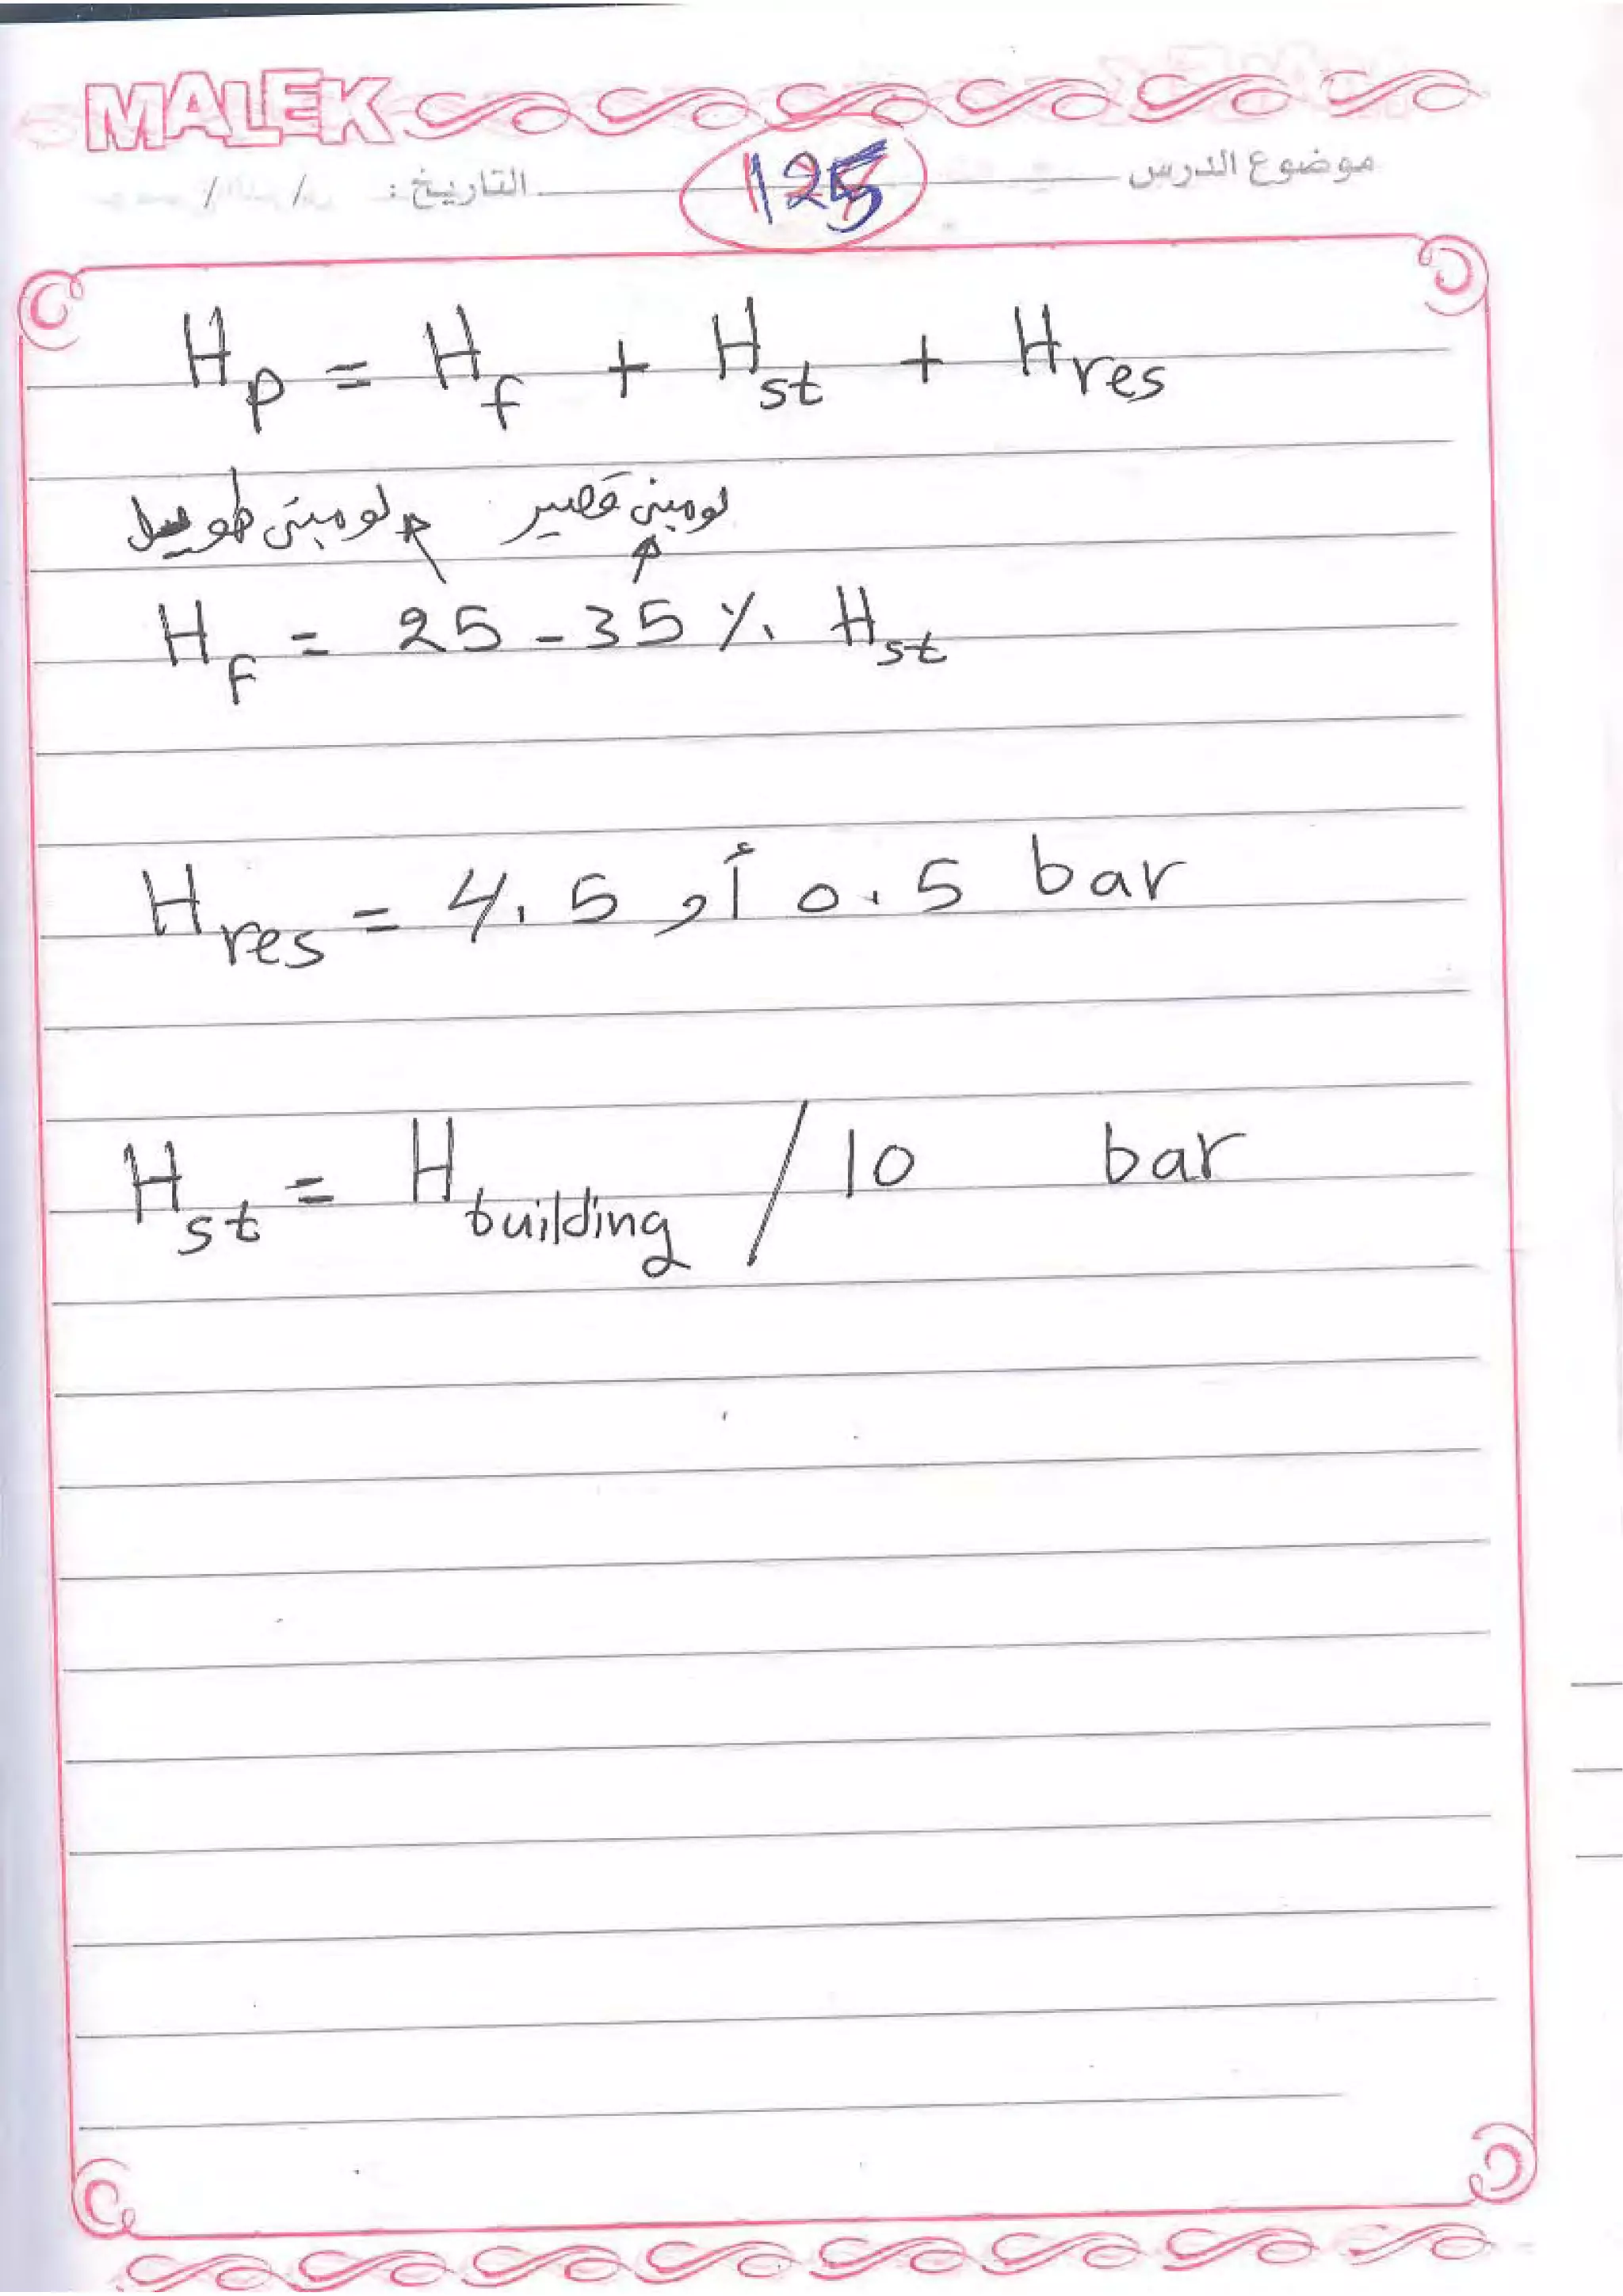 MALEK
موضوع الدرس 125 التاريخ : / /
Hp = Hf + Hst + Hres
لو مبنى طويل لو مبنى قصير
HF = 25 - 35 % Hst
Hres = 4.5 أو 0.5 bar
Hst = Hbuilding / 10 bar